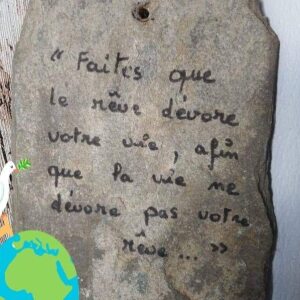 « Faites que
le rêve dévore
votre vie, afin
que la vie ne
dévore pas votre
rêve... »